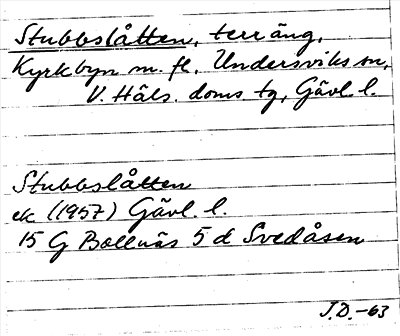 Stubbslåtten, terräng,
Kyrkbyn m. fl., Undersviks sn,
V. Häls. doms. tg, Gävl. l.
Stubbslåtten
ek (1957) Gävl. l.
15 G Bollnäs 5 d Svedåsen
J.D. -63